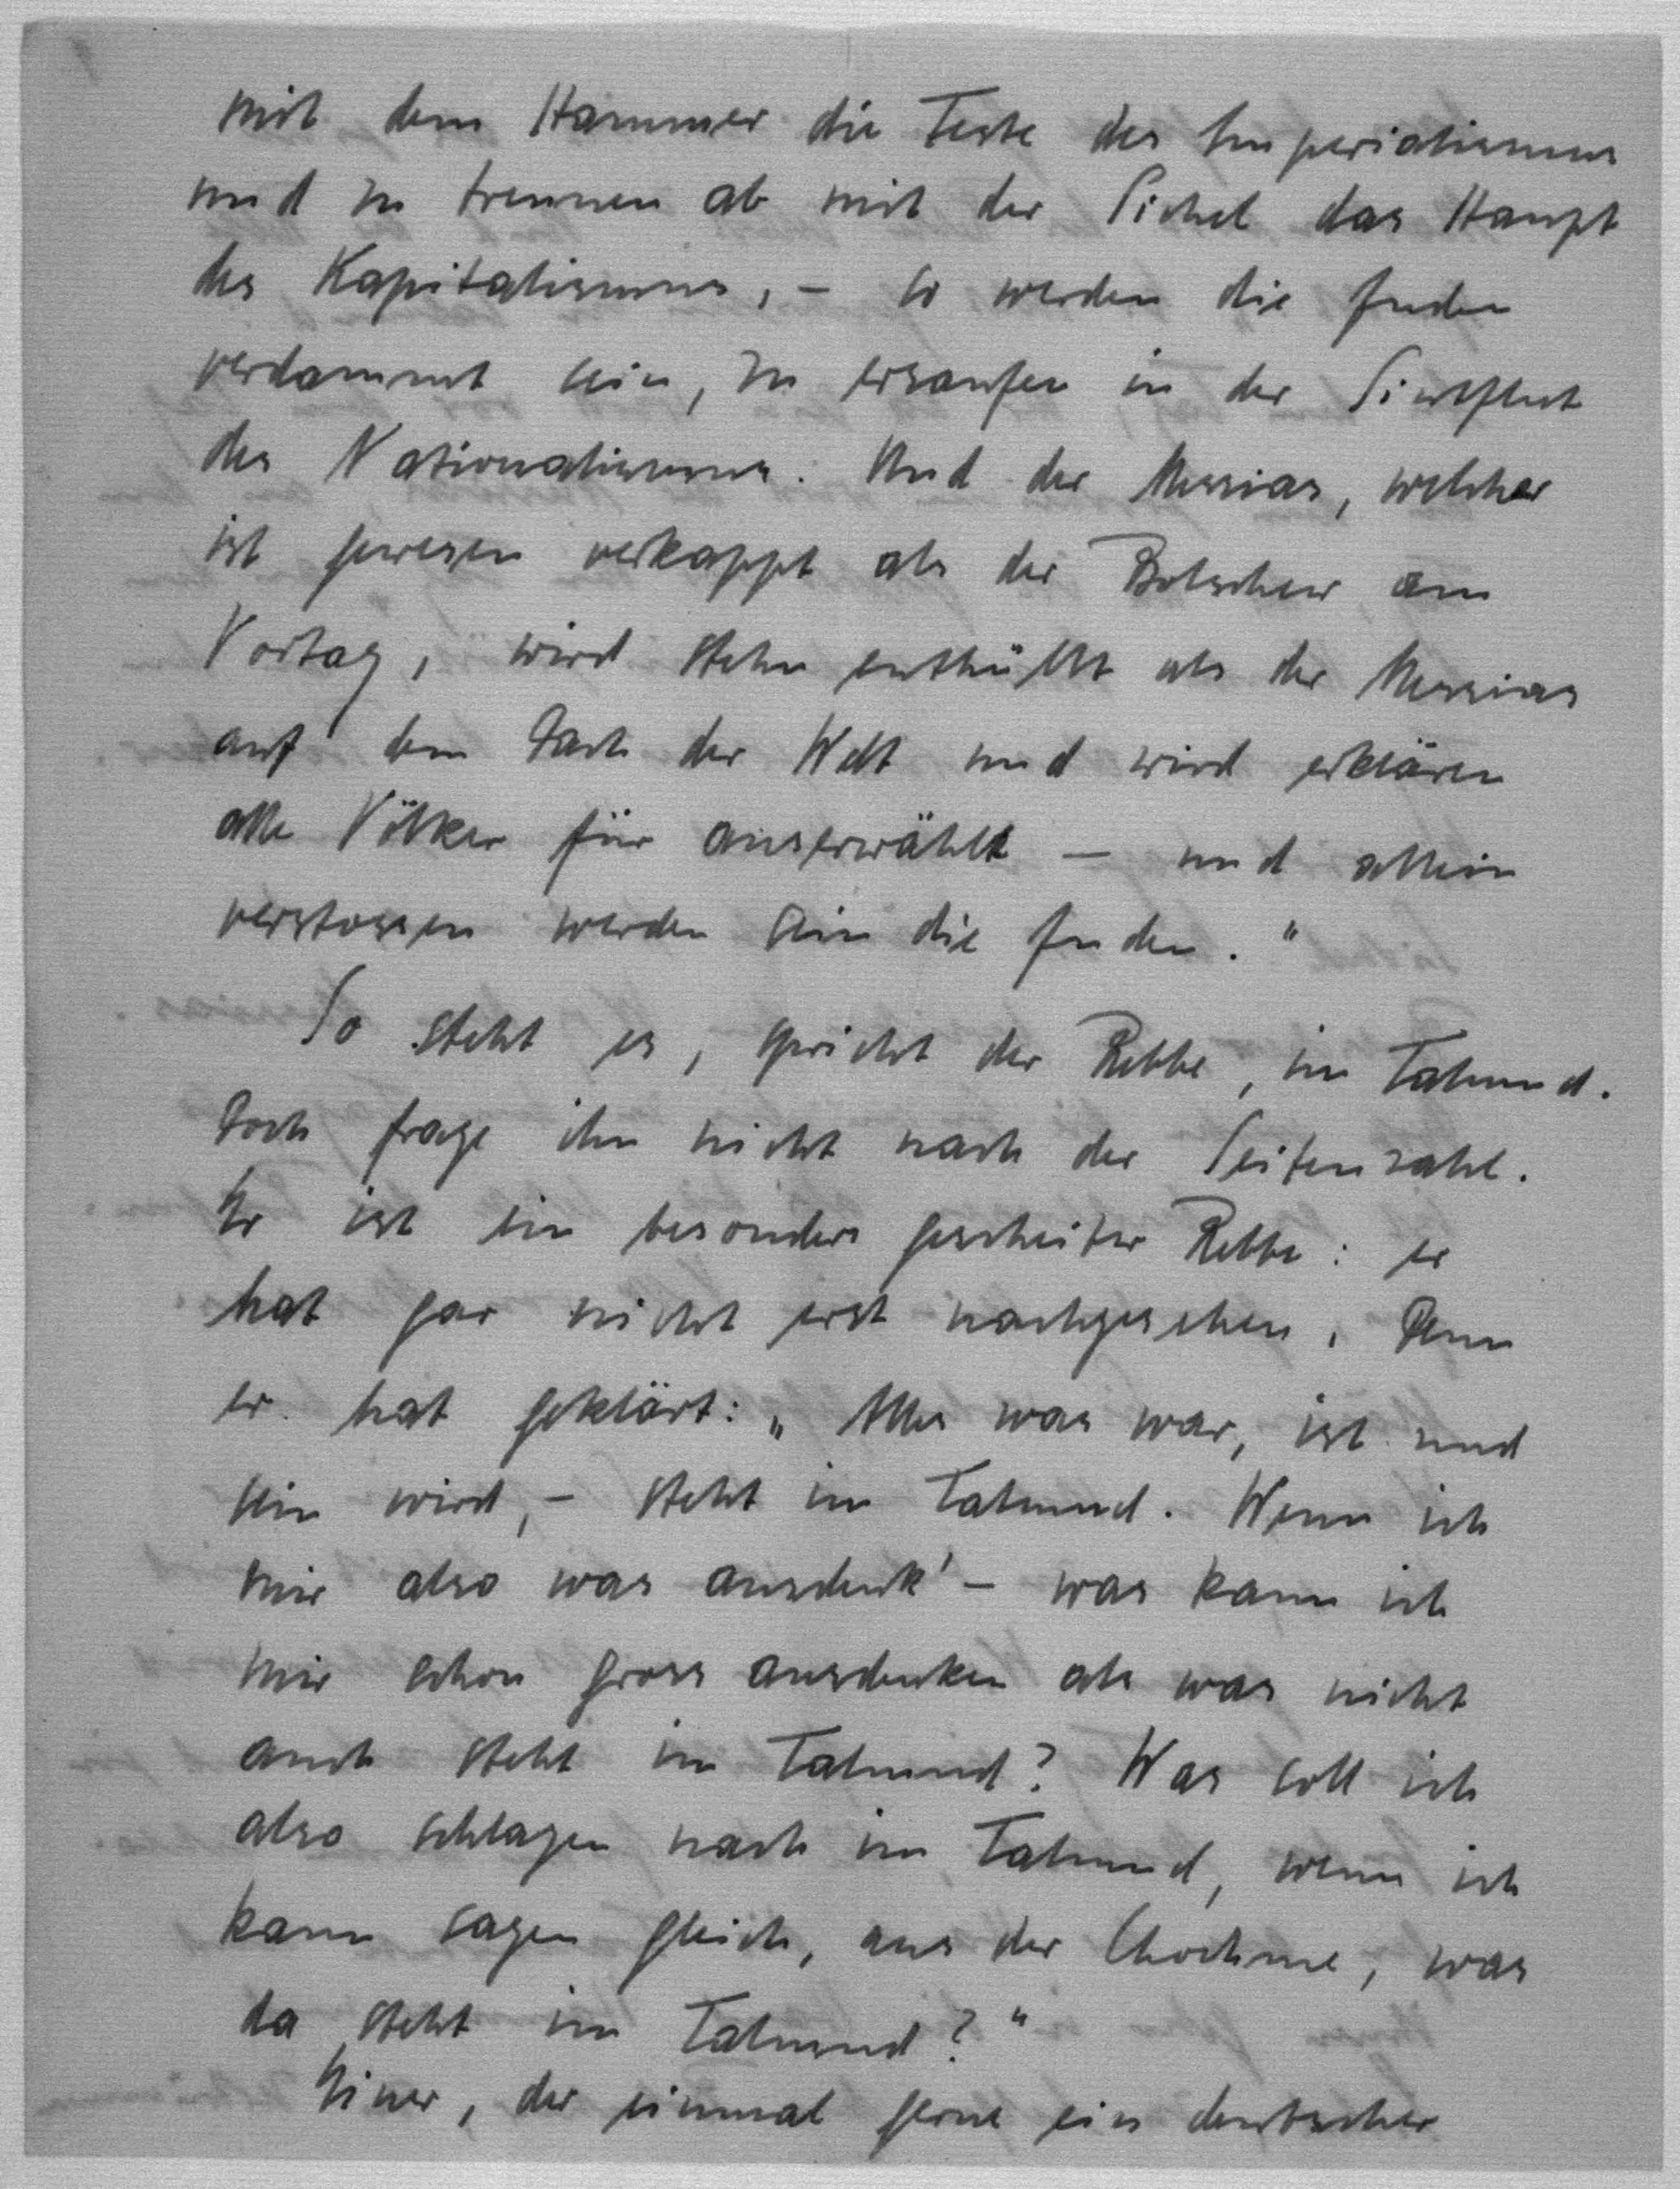 mit dem Hammer die Feste des Imperialismus
und zu trennen ab mit der Sichel das Haupt
des Kapitalismus, – so werden die Juden
verdammt sein, zu ersaufen in der Sintflut
des Nationalismus. Und der Messias, welcher
ist gewesen verkappt als der Bolschew am
Vortag, wird stehn enthüllt als der Messias
auf dem Dach der Welt und wird erklären
alle Völker für auserwählt – und allein
verstossen werden sein die Juden."
So steht es, spricht der Rebbe, im Talmud.
Doch frage ihn nicht nach der Seitenzahl.
Er ist ein besonders gescheiter Rebbe: er
hat gar nicht erst nachgesehen. Denn
er hat geklärt: „Alles was war, ist und
sein wird, – steht im Talmud. Wenn ich
mir also was ausdenk' – was kann ich
mir schon gross ausdenken als was nicht
auch steht im Talmud? Was soll ich
also schlagen nach im Talmud, wenn ich
kann sagen gleich, aus der Chochme, was
da steht im Talmud?"
Einer, der einmal gerne ein deutscher